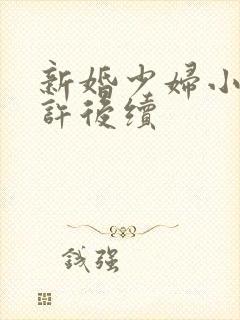 新婚少婦小
許後續
誠强